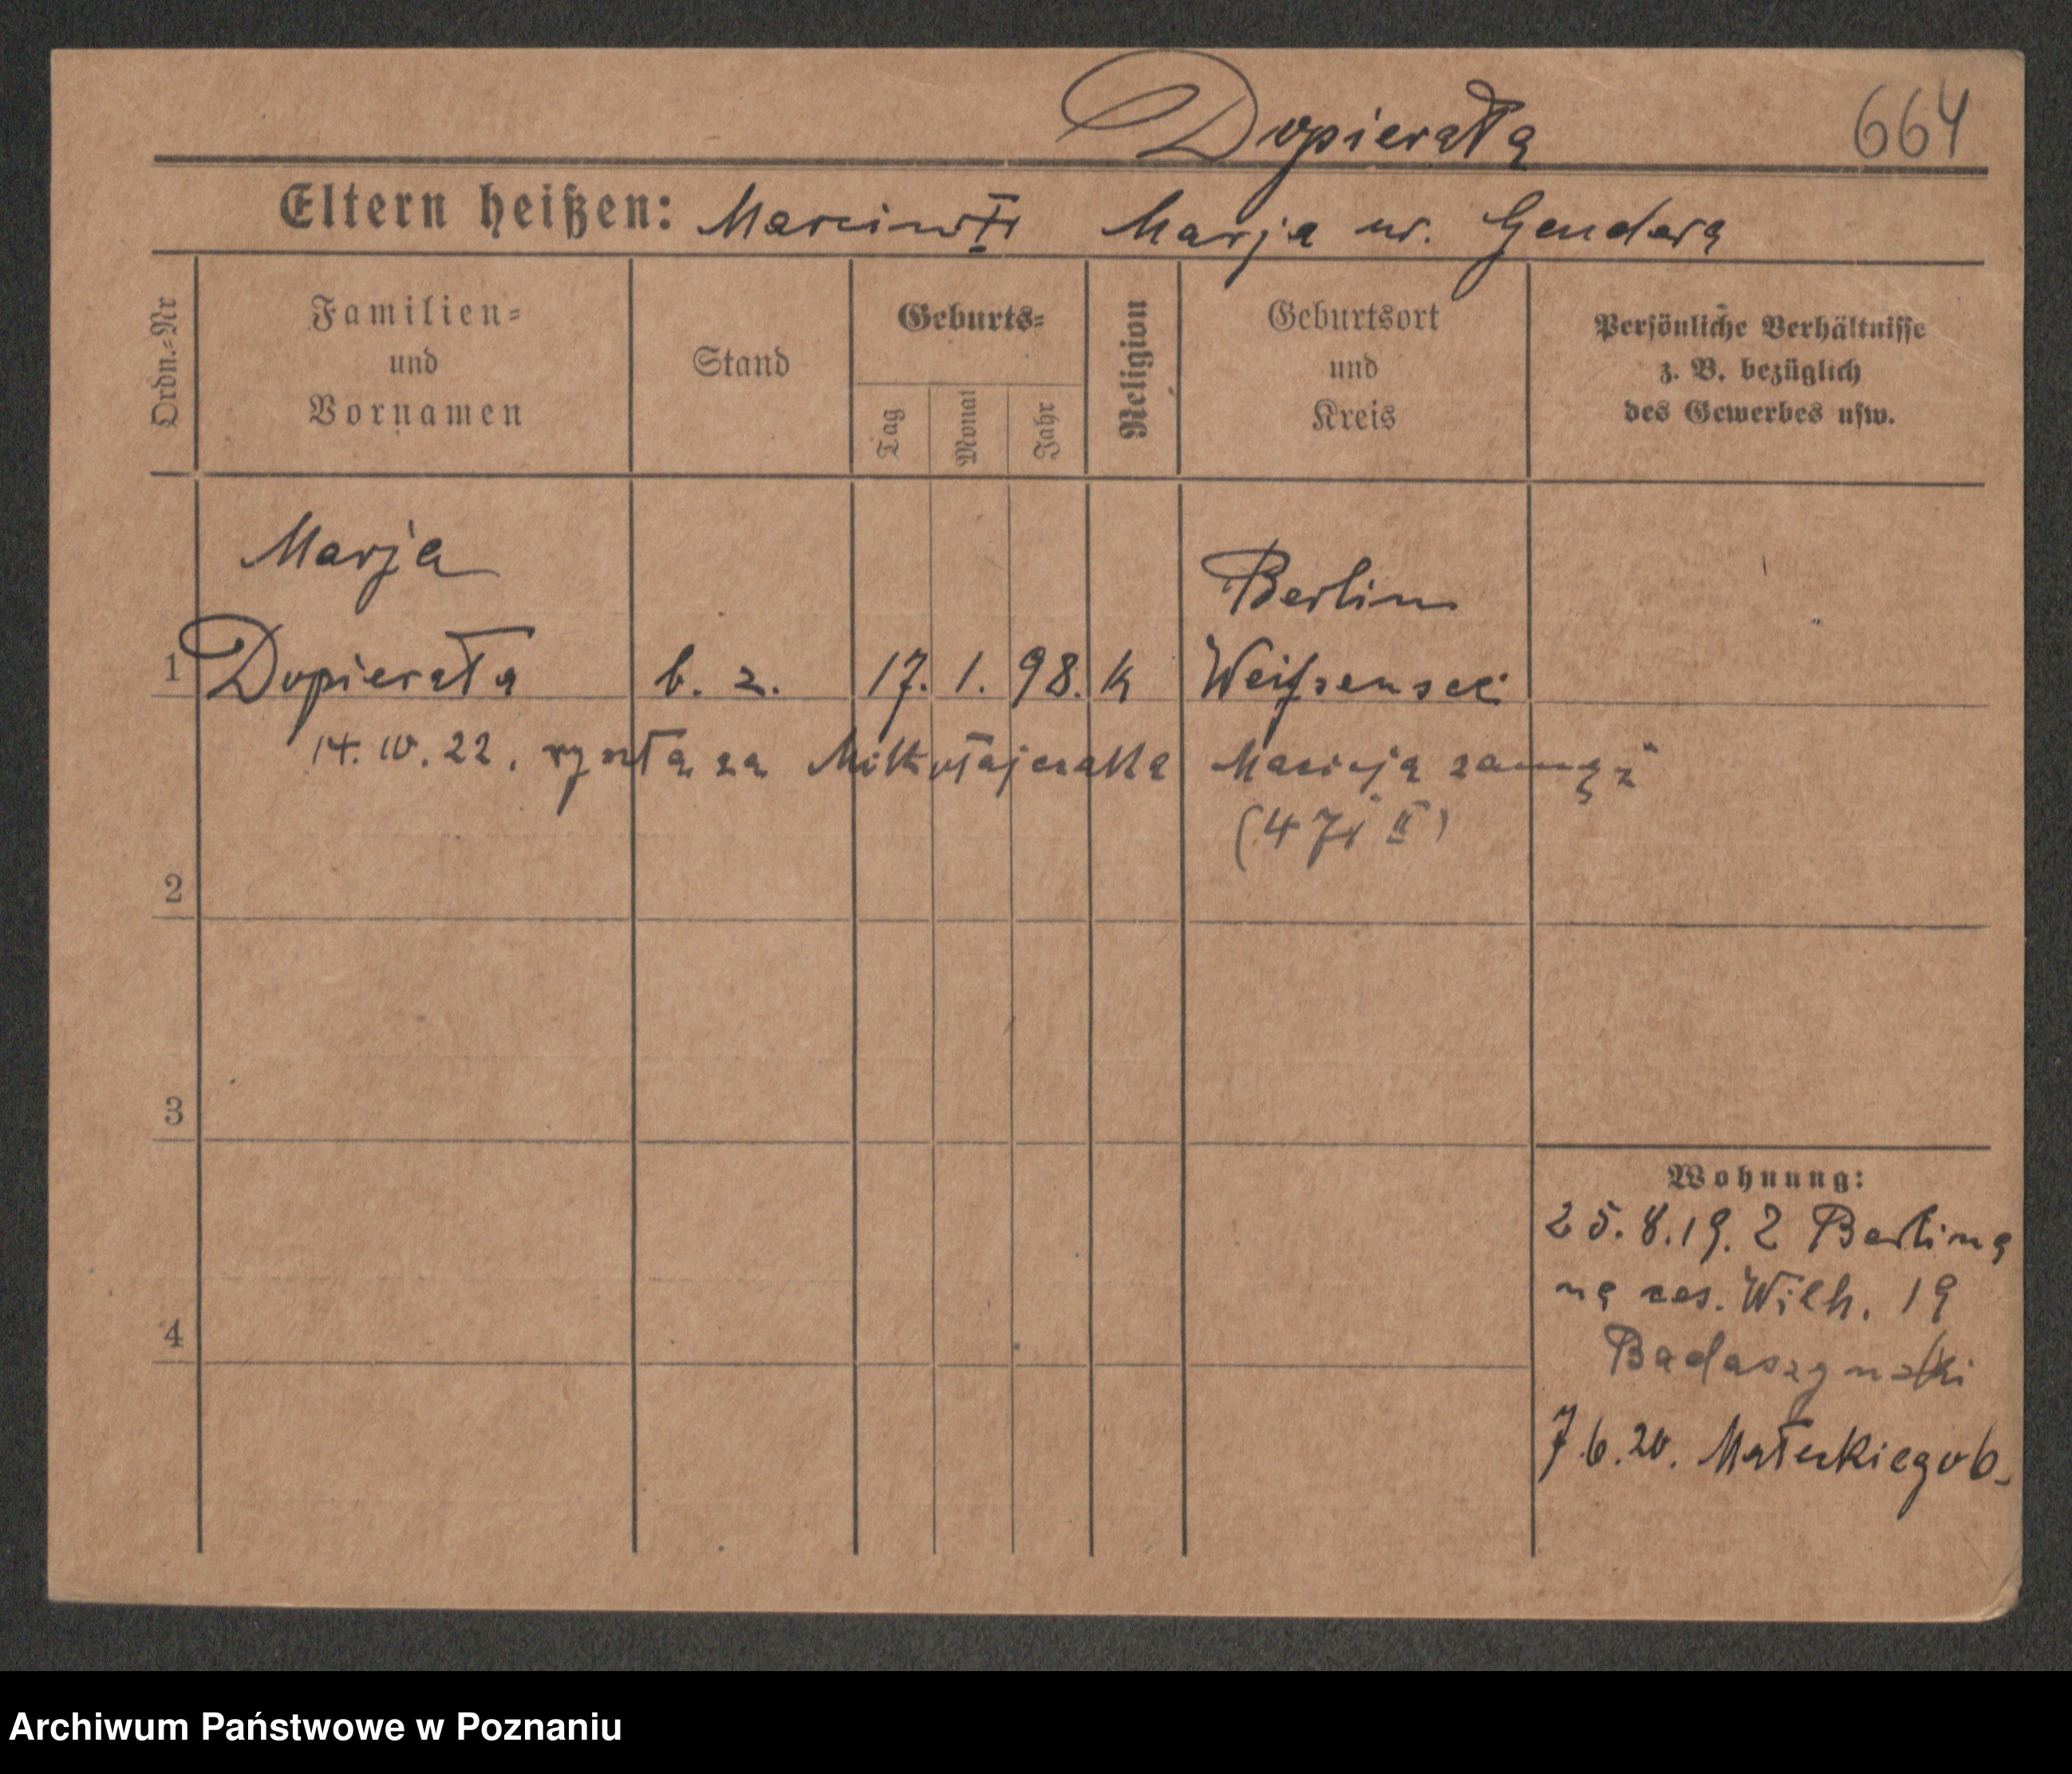 Dopierała 664
Eltern heißen: Marcin Marja ur. Gendera
Ordn.=Nr
Familien=
und
Vornamen
Stand
Geburts=
Tag
Monat
Jahr
Religion
Geburtsort
und
Kreis
Persönliche Verhältnisse
z. B. bezüglich
des Gewerbes usw.
Marja
Berlin
1 Dopierała b. z. 17. 1. 98. k Weißensee
14. 10. 22. wyszła za Mikołajczaka Macieja zamąż
(471 II)
2
3
4
Wohnung:
25.8.19. z Berlina
na ces. Wilh. 19
7.6.20. Małeckiego 6.
Archiwum Państwowe w Poznaniu